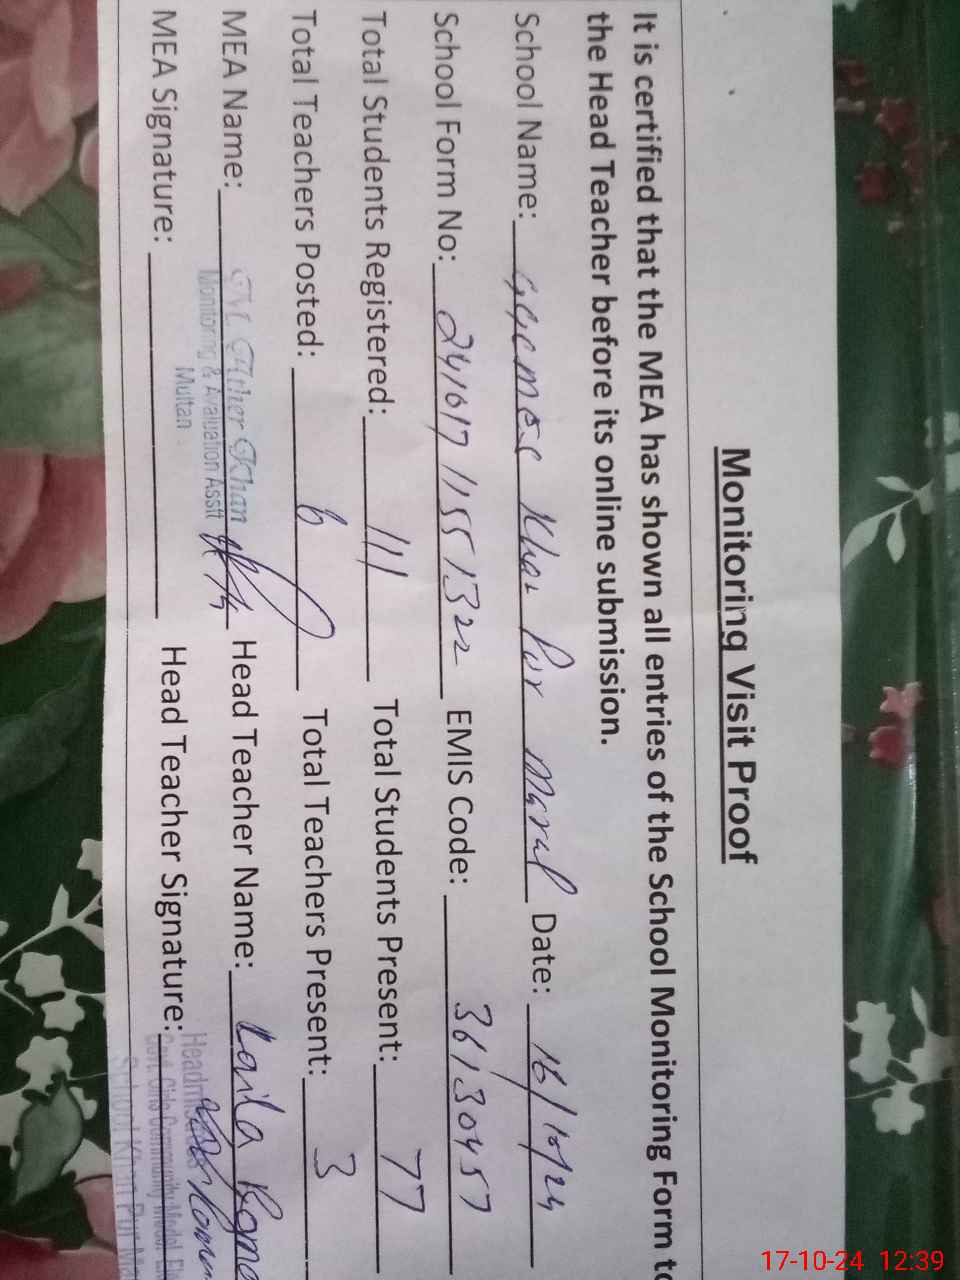 Monitoring Visit Proof
It is certified that the MEA has shown all entries of the School Monitoring Form to
the Head Teacher before its online submission.
School Name: GGCMES Khan Pur Maral Date: 16/10/24
School Form No: 241017 1155 1322 EMIS Code: 36130457
Total Students Registered: 111 Total Students Present: 77
Total Teachers Posted: 6 Total Teachers Present: 3
MEA Name: Ather Khan Head Teacher Name: Laila
Monitoring & Avaluation Asstt
Multan
MEA Signature: Head Teacher Signature:
Govt. Girls Community Model
School Khan Pur
17-10-24 12:39